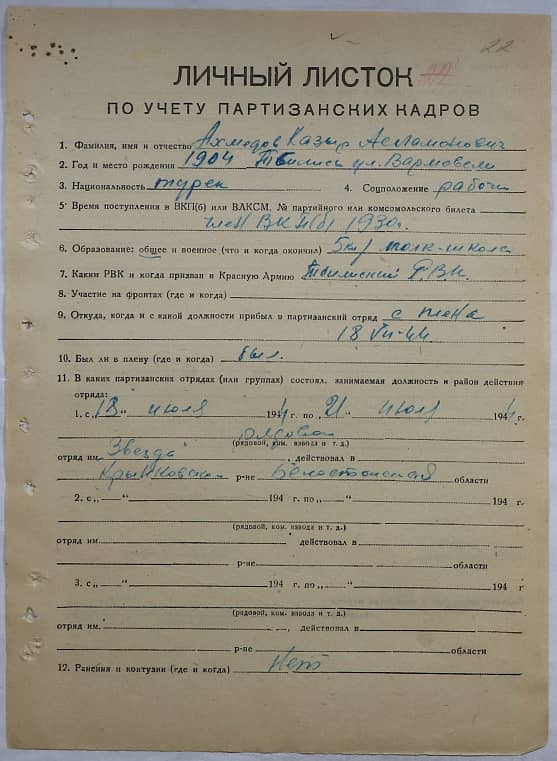 22
ЛИЧНЫЙ ЛИСТОК
ПО УЧЕТУ ПАРТИЗАНСКИХ КАДРОВ
1. Фамилия, имя и отчество Ахмедов Казыр Асламонович
2. Год и место рождения 1904 Тбилиси ул.
3. Национальность турек 4. Соцположение рабочи
5. Время поступления в ВКП(б) или ВЛКСМ, № партийного или комсомольского билета
член ВКП(б) 1930г.
6. Образование: общее и военное (что и когда окончил) 5кл, полк-школа
7. Каким РВК и когда призван в Красную Армию РВК.
8. Участие на фронтах (где и когда)
9. Откуда, когда и с какой должности прибыл в партизанский отряд с плена
18 VII-44
10. Был ли в плену (где и когда) был.
11. В каких партизанских отрядах (или группах) состоял, занимаемая должность и район действия
отряда:
1. с „18“ июля 1944 г. по „21“ июля 1944 г.
рядовой
(рядовой, ком. взвода и т. д.)
отряд им. Звезда, действовал в
Крынковском р-не Белостокской области
2. с „ “ 194 г. по „ “ 194 г.
(рядовой, ком. взвода и т. д.)
отряд им. действовал в
р-не области
3. с „ “ 194 г. по „ “ 194 г
(рядовой, ком. взвода и т. д.)
отряд им. , действовал в
р-не области
12. Ранения и контузии (где и когда) Нет